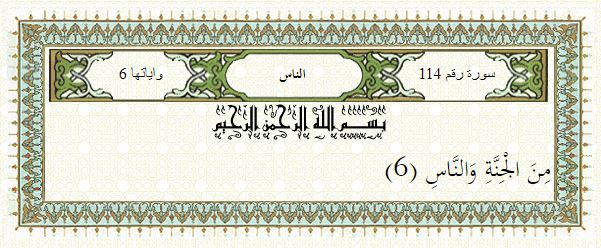 سورة رقم 114 الناس وآياتها 6
بسم الله الرحمن الرحيم
مِنَ الْجِنَّةِ وَالنَّاسِ (6)